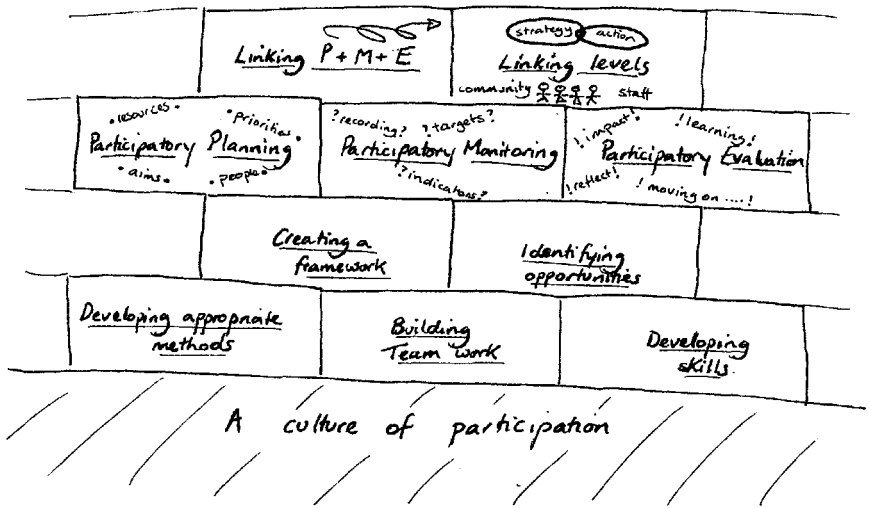 strategy action
Linking P + M + E
Linking levels
community staff
resources
priorities
Participatory Planning
aims
people
? recording? ? targets?
Participatory Monitoring
? indicators?
! impact! ! learning!
Participatory Evaluation
! reflect! ! moving on ....!
Creating a
framework
Identifying
opportunities
Developing appropriate
methods
Building
Team work
Developing
skills.
A culture of participation